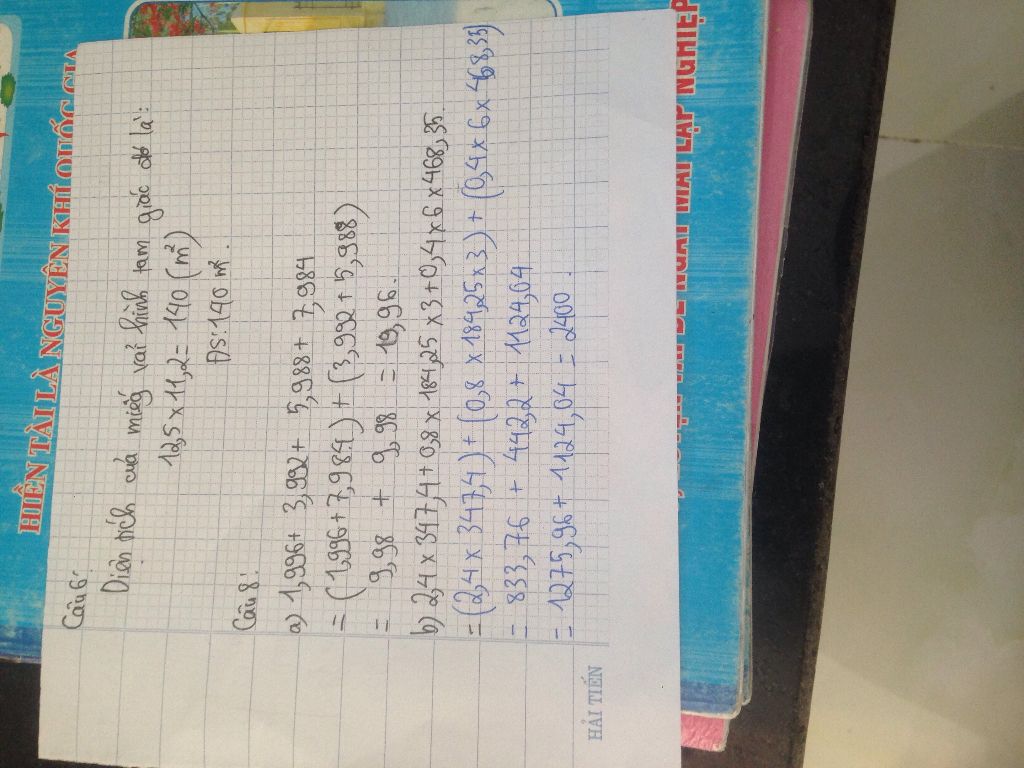 HIỀN TÀI LÀ NGUYÊN KHÍ QUỐC GIA
Câu 6:
Diện tích của miếng vai hình tam giác đó là:
12,5 x 11,2 = 140 (m²)
Đs: 140 m².
Câu 8:
a) 1,996 + 3,992 + 5,988 + 7,984
= (1,996 + 7,984) + (3,992 + 5,988)
= 9,98 + 9,98 = 19,96.
b) 2,4 x 347,4 + 0,8 x 184,25 x 3 + 0,4 x 6 x 468,35.
= (2,4 x 347,4) + (0,8 x 184,25 x 3) + (0,4 x 6 x 468,35)
= 833,76 + 442,2 + 1124,04
= 1275,96 + 1124,04 = 2400.
HẢI TIẾN
NGÀY MAI LẬP NGHIỆP